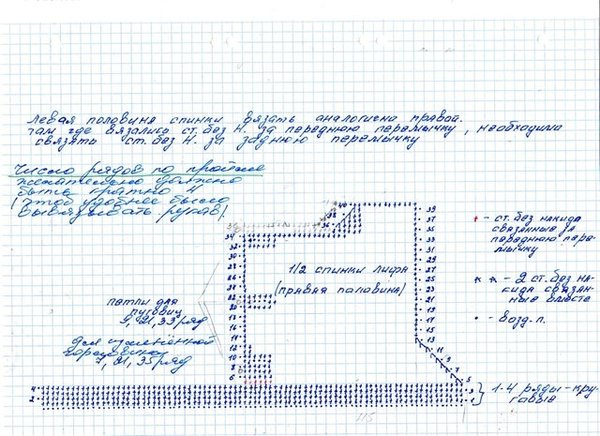 Левая половина спинки вязать аналогично правой.
Там где вязались ст. без н. за переднюю перемычку, необходимо
связать ст. без н. за заднюю перемычку
Число рядов по пройме
желательно должно
быть кратно 4
(чтоб удобнее было
вывязывать рукав)
петли для
пуговиц
9, 21, 33 ряд
для
горловины
7, 21, 35 ряд
1/2 спинки лифа
(правая половина)
40
34
32
30
28
26
24
22
20
18
16
14
12
10
8
6
4
2
39
37
35
33
31
29
27
25
23
21
19
17
15
13
11
9
7
5
3
1
- ст. без накида
связанные за
переднюю пере-
мычку
- 2 ст. без на-
кида связан-
ные вместе
- возд. п.
1-4 ряды - кру-
говые
115